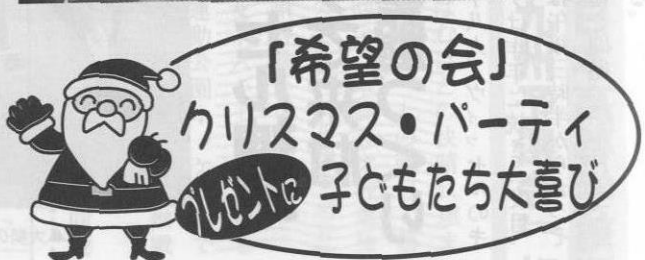 「希望の会」
クリスマス・パーティ
プレゼントに子どもたち大喜び